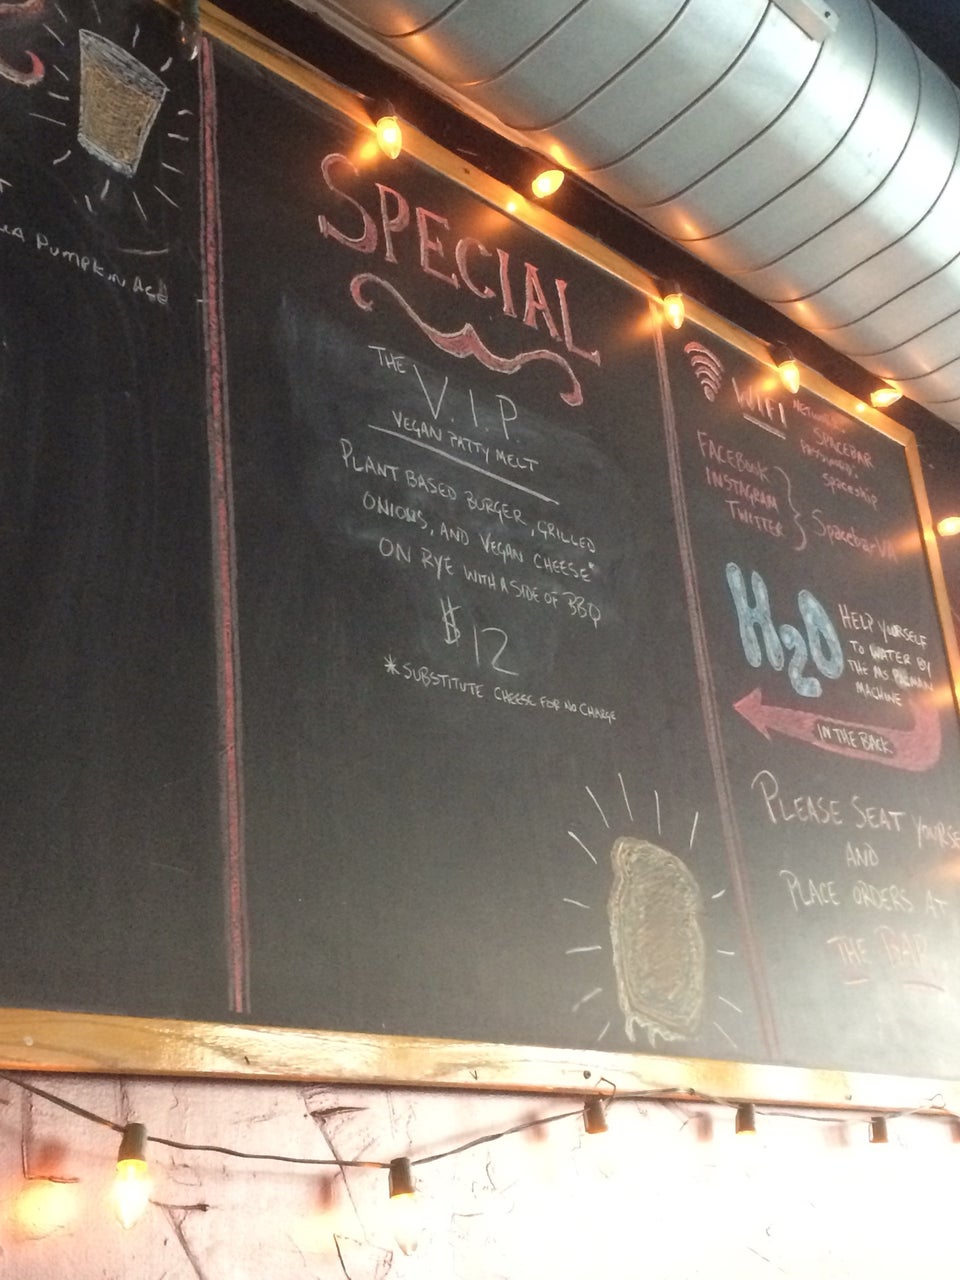 PUMPKIN ALE
SPECIAL
THE
V.I.P.
VEGAN PATTY MELT
PLANT BASED BURGER, GRILLED
ONIONS, AND VEGAN CHEESE*
ON RYE WITH A SIDE OF BBQ
$12
*SUBSTITUTE CHEESE FOR NO CHARGE
WIFI
SPACEBAR
spaceship
FACEBOOK
INSTAGRAM
TWITTER
SpacebarVA
H2O
HELP YOURSELF
TO WATER BY
THE MS PACMAN
MACHINE
IN THE BACK
PLEASE SEAT
AND
PLACE ORDERS AT
THE BAR